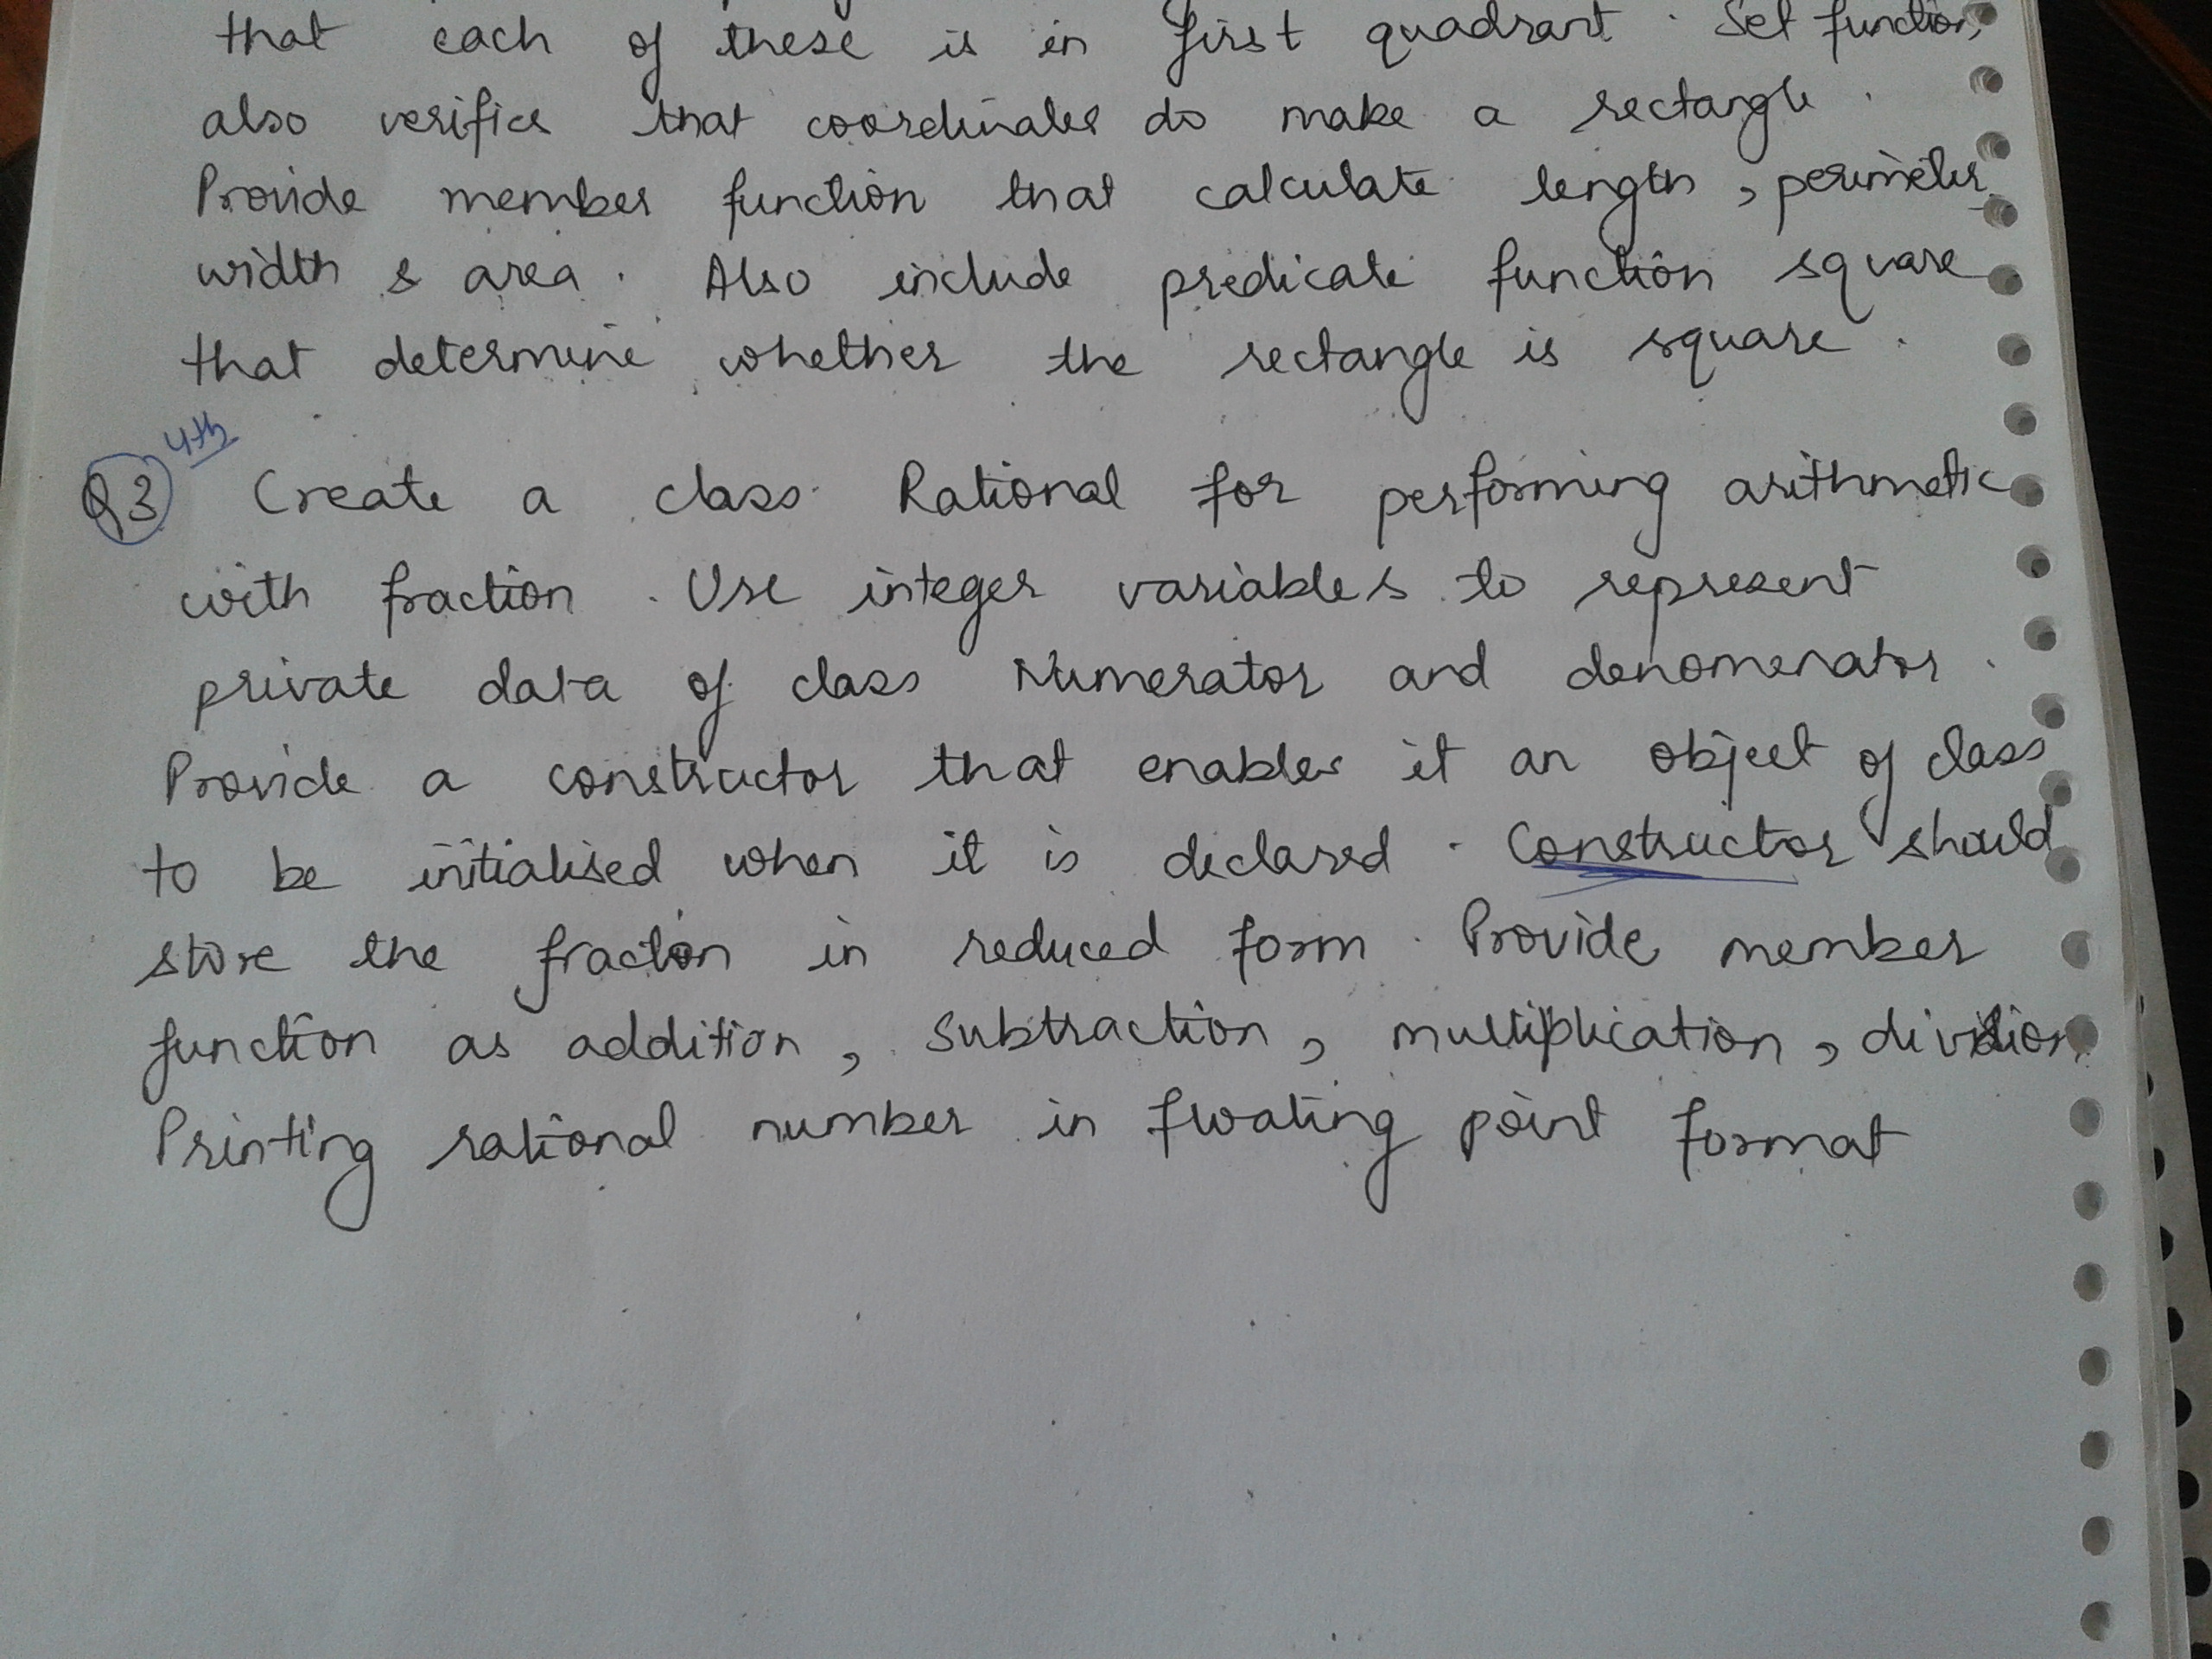 that each of these is in first quadrant. Set function
also verifies that coordinates do make a rectangle.
Provide member function that calculate length, perimeter
width & area. Also include predicate function square
that determine whether the rectangle is square.
4th
Q3 Create a class Rational for performing arithmetic
with fraction. Use integer variables to represent
private data of class Numerator and denomenator.
Provide a constructor that enables it an object of class
to be initialised when it is declared. Constructor should
store the fraction in reduced form. Provide member
function as addition, subtraction, multiplication, division
Printing rational number in floating point format